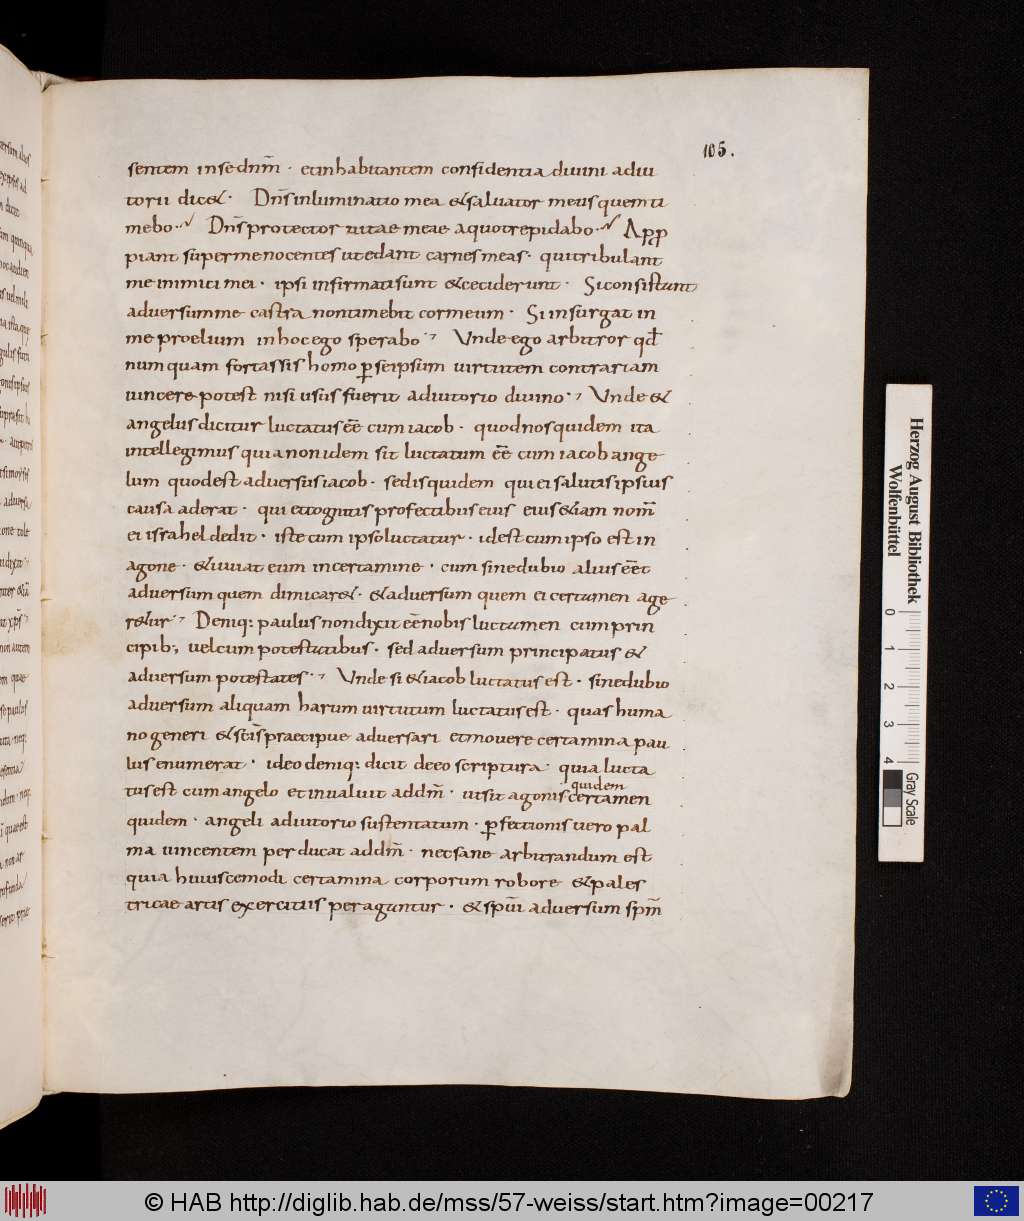 105.
sentem in se dnm̄ · et inhabitantem confidentia divini adiu
torii dicet · Dn̄s inluminatio mea et salvator meus quem ti
mebo · Dn̄s protector vitae meae a quo trepidabo · App̱ro
piant super me nocentes ut edant carnes meas · qui tribulant
me inimici mei · ipsi infirmati sunt et ceciderunt · Si consistant
adversum me castra non timebit cor meum · Si insurgat in
me proelium in hoc ego sperabo · Unde ego arbitror qd̄
numquam fortassis homo ꝑ seipsum virtutem contrariam
vincere potest nisi usus fuerit adiutorio divino · Unde et
angelus dicitur luctatus eē cum iacob · quod nos quidem ita
intellegimus quia non idem sit luctatum eē cum iacob ange
lum quod est adversus iacob · sed is quidem qui ei salutis ipsius
causa aderat · qui et cognitis profectibus eius eius etiam nom̄
ei israhel dedit · iste cum ipso luctatur · id est cum ipso est in
agone · et iuvat eum in certamine · cum sine dubio alius eēt
adversum quem dimicaret · et adversum quem ei certamen age
retur · Deniq: paulus non dixit eē nobis luctamen cum prin
cipib; vel cum potestatibus · sed adversum principatus et
adversum potestates · Unde si et iacob luctatus est · sine dubio
adversum aliquam harum virtutum luctatus est · quas huma
no generi et sc̄is praecipue adversari et movere certamina pau
lus enumerat · ideo deniq: dicit de eo scriptura · quia lucta
tus est cum angelo et invaluit ad dm̄ · ut sit agonis quidem certamen
quidem · angeli adiutorio sustentatum · ꝑfectionis vero pal
ma vincentem perducat ad dm̄ · nec sane arbitrandum est
quia huiuscemodi certamina corporum robore et pales
tricae artis exercitiis peragantur · et spūi adversum spm̄
Herzog August Bibliothek
Wolfenbüttel
0 1 2 3 4
Gray Scale
© HAB http://diglib.hab.de/mss/57-weiss/start.htm?image=00217